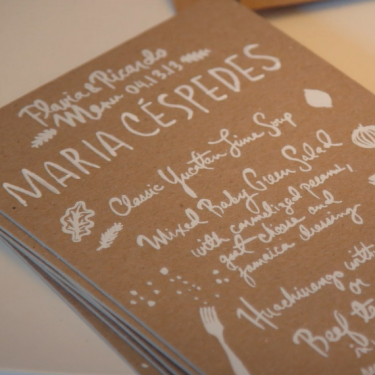 Flavia & Ricardo
Menu 04.13.13
MARIA CÉSPEDES
Classic Yucatan Lime Soup
Mixed Baby Green Salad
with caramelized pecans,
goat cheese and
jamaica dressing
Huachinango with
or
Beef